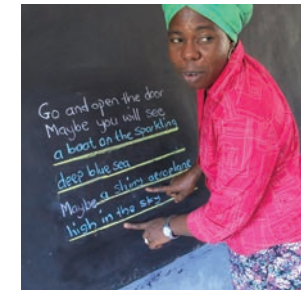 Go and open the door
Maybe you will see
a boat on the sparkling
deep blue sea
Maybe a shiny aeroplane
high in the sky